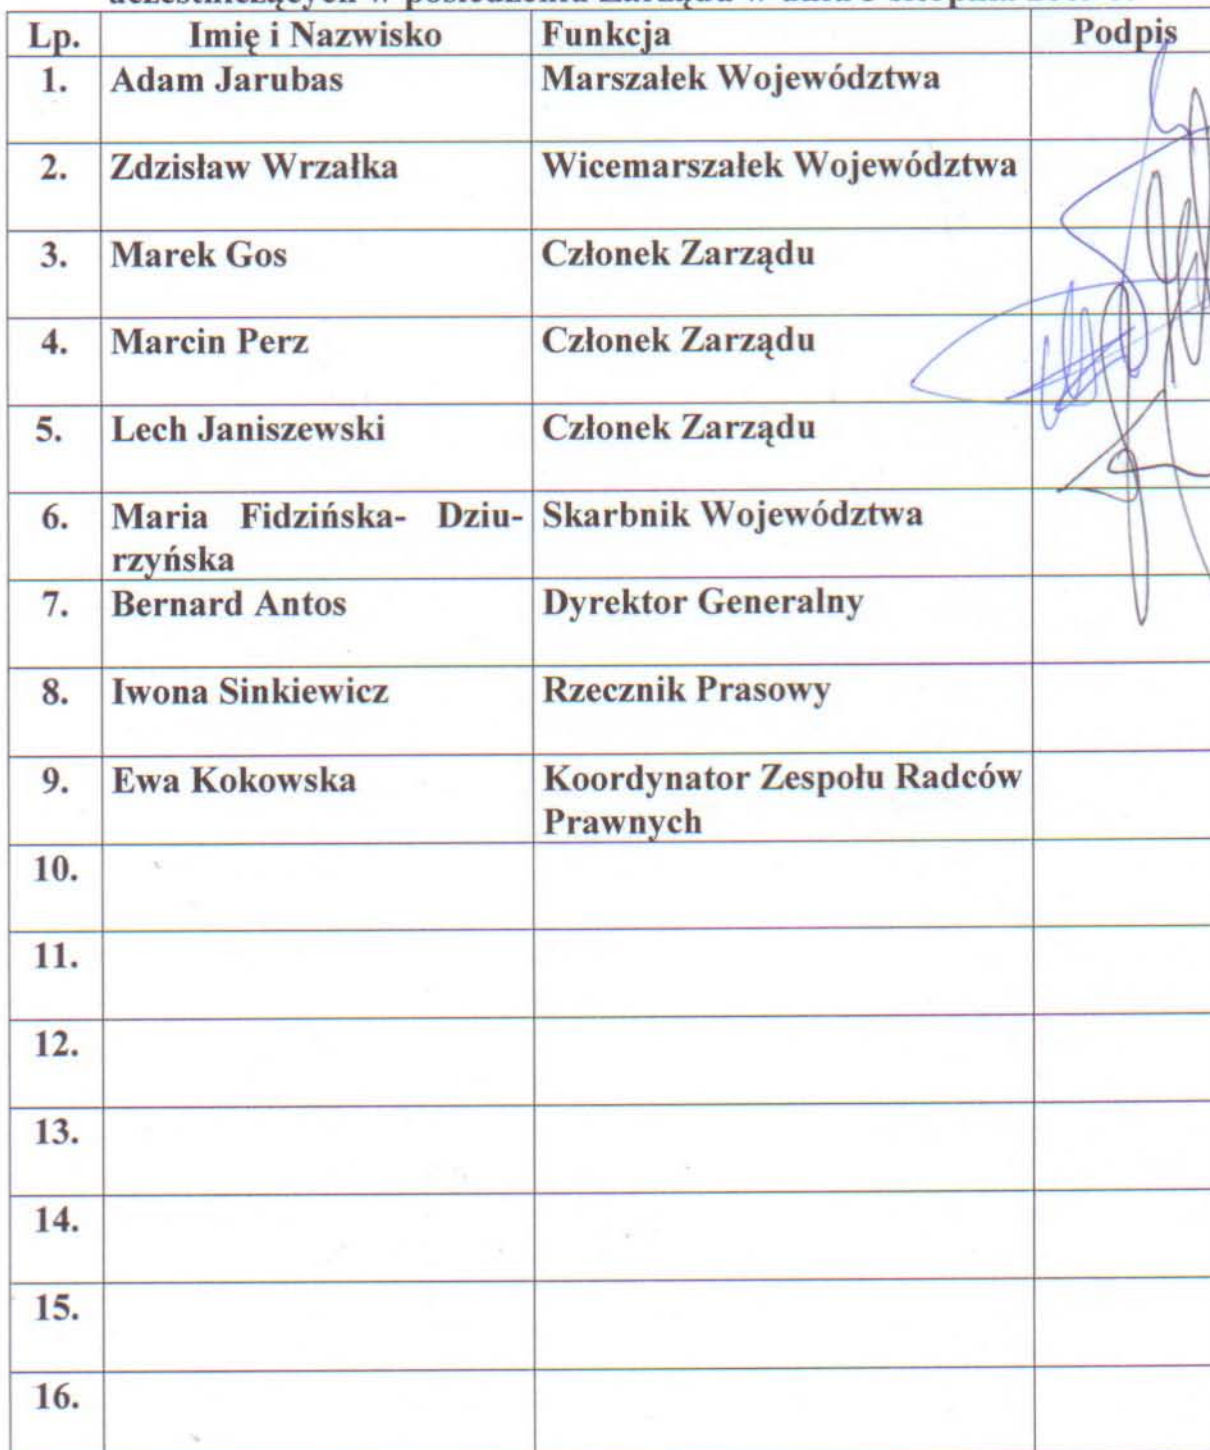 uczestniczących w posiedzeniu Zarządu w dniu
Lp. Imię i Nazwisko Funkcja Podpis
1. Adam Jarubas Marszałek Województwa
2. Zdzisław Wrzałka Wicemarszałek Województwa
3. Marek Gos Członek Zarządu
4. Marcin Perz Członek Zarządu
5. Lech Janiszewski Członek Zarządu
6. Maria Fidzińska- Dziu- Skarbnik Województwa
rzyńska
7. Bernard Antos Dyrektor Generalny
8. Iwona Sinkiewicz Rzecznik Prasowy
9. Ewa Kokowska Koordynator Zespołu Radców
Prawnych
10.
11.
12.
13.
14.
15.
16.